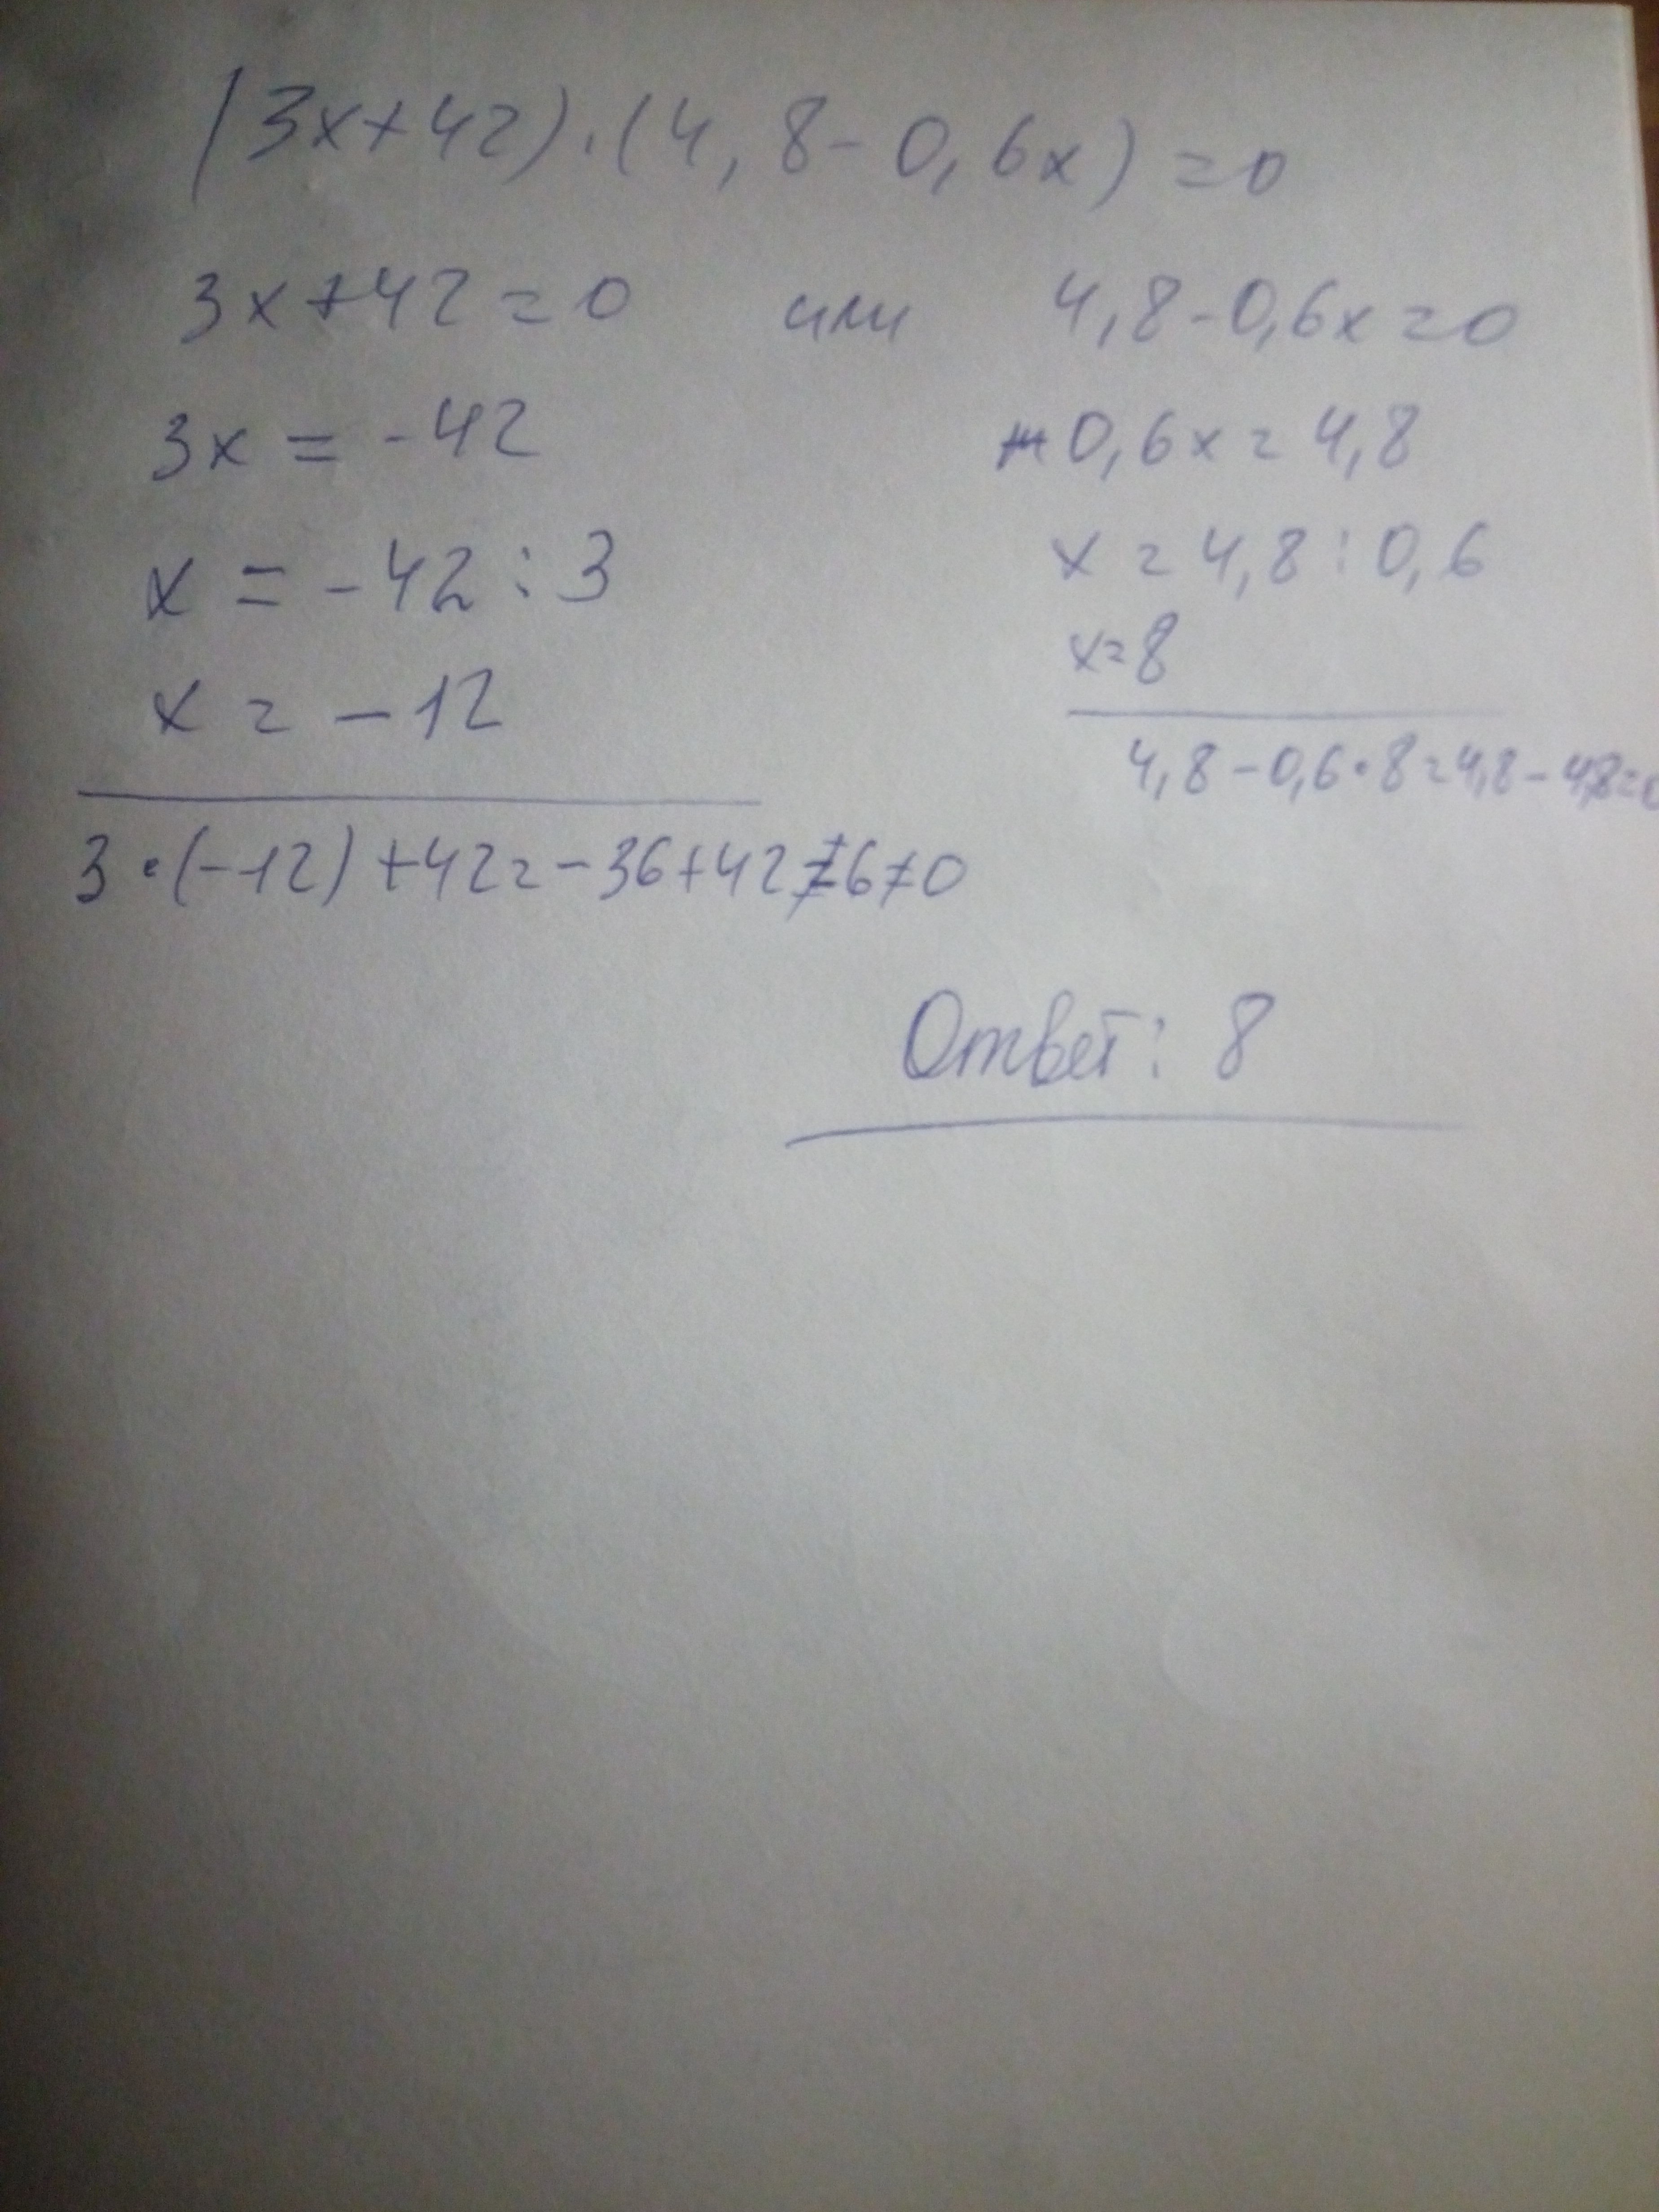 (3x+42)·(4,8-0,6x)=0
3x+42=0 или 4,8-0,6x=0
3x=-42
0,6x=4,8
x=-42:3
x=4,8:0,6
x=-12
x=8
3·(-12)+42=-36+42=6≠0
4,8-0,6·8=4,8-4,8=0
Ответ: 8